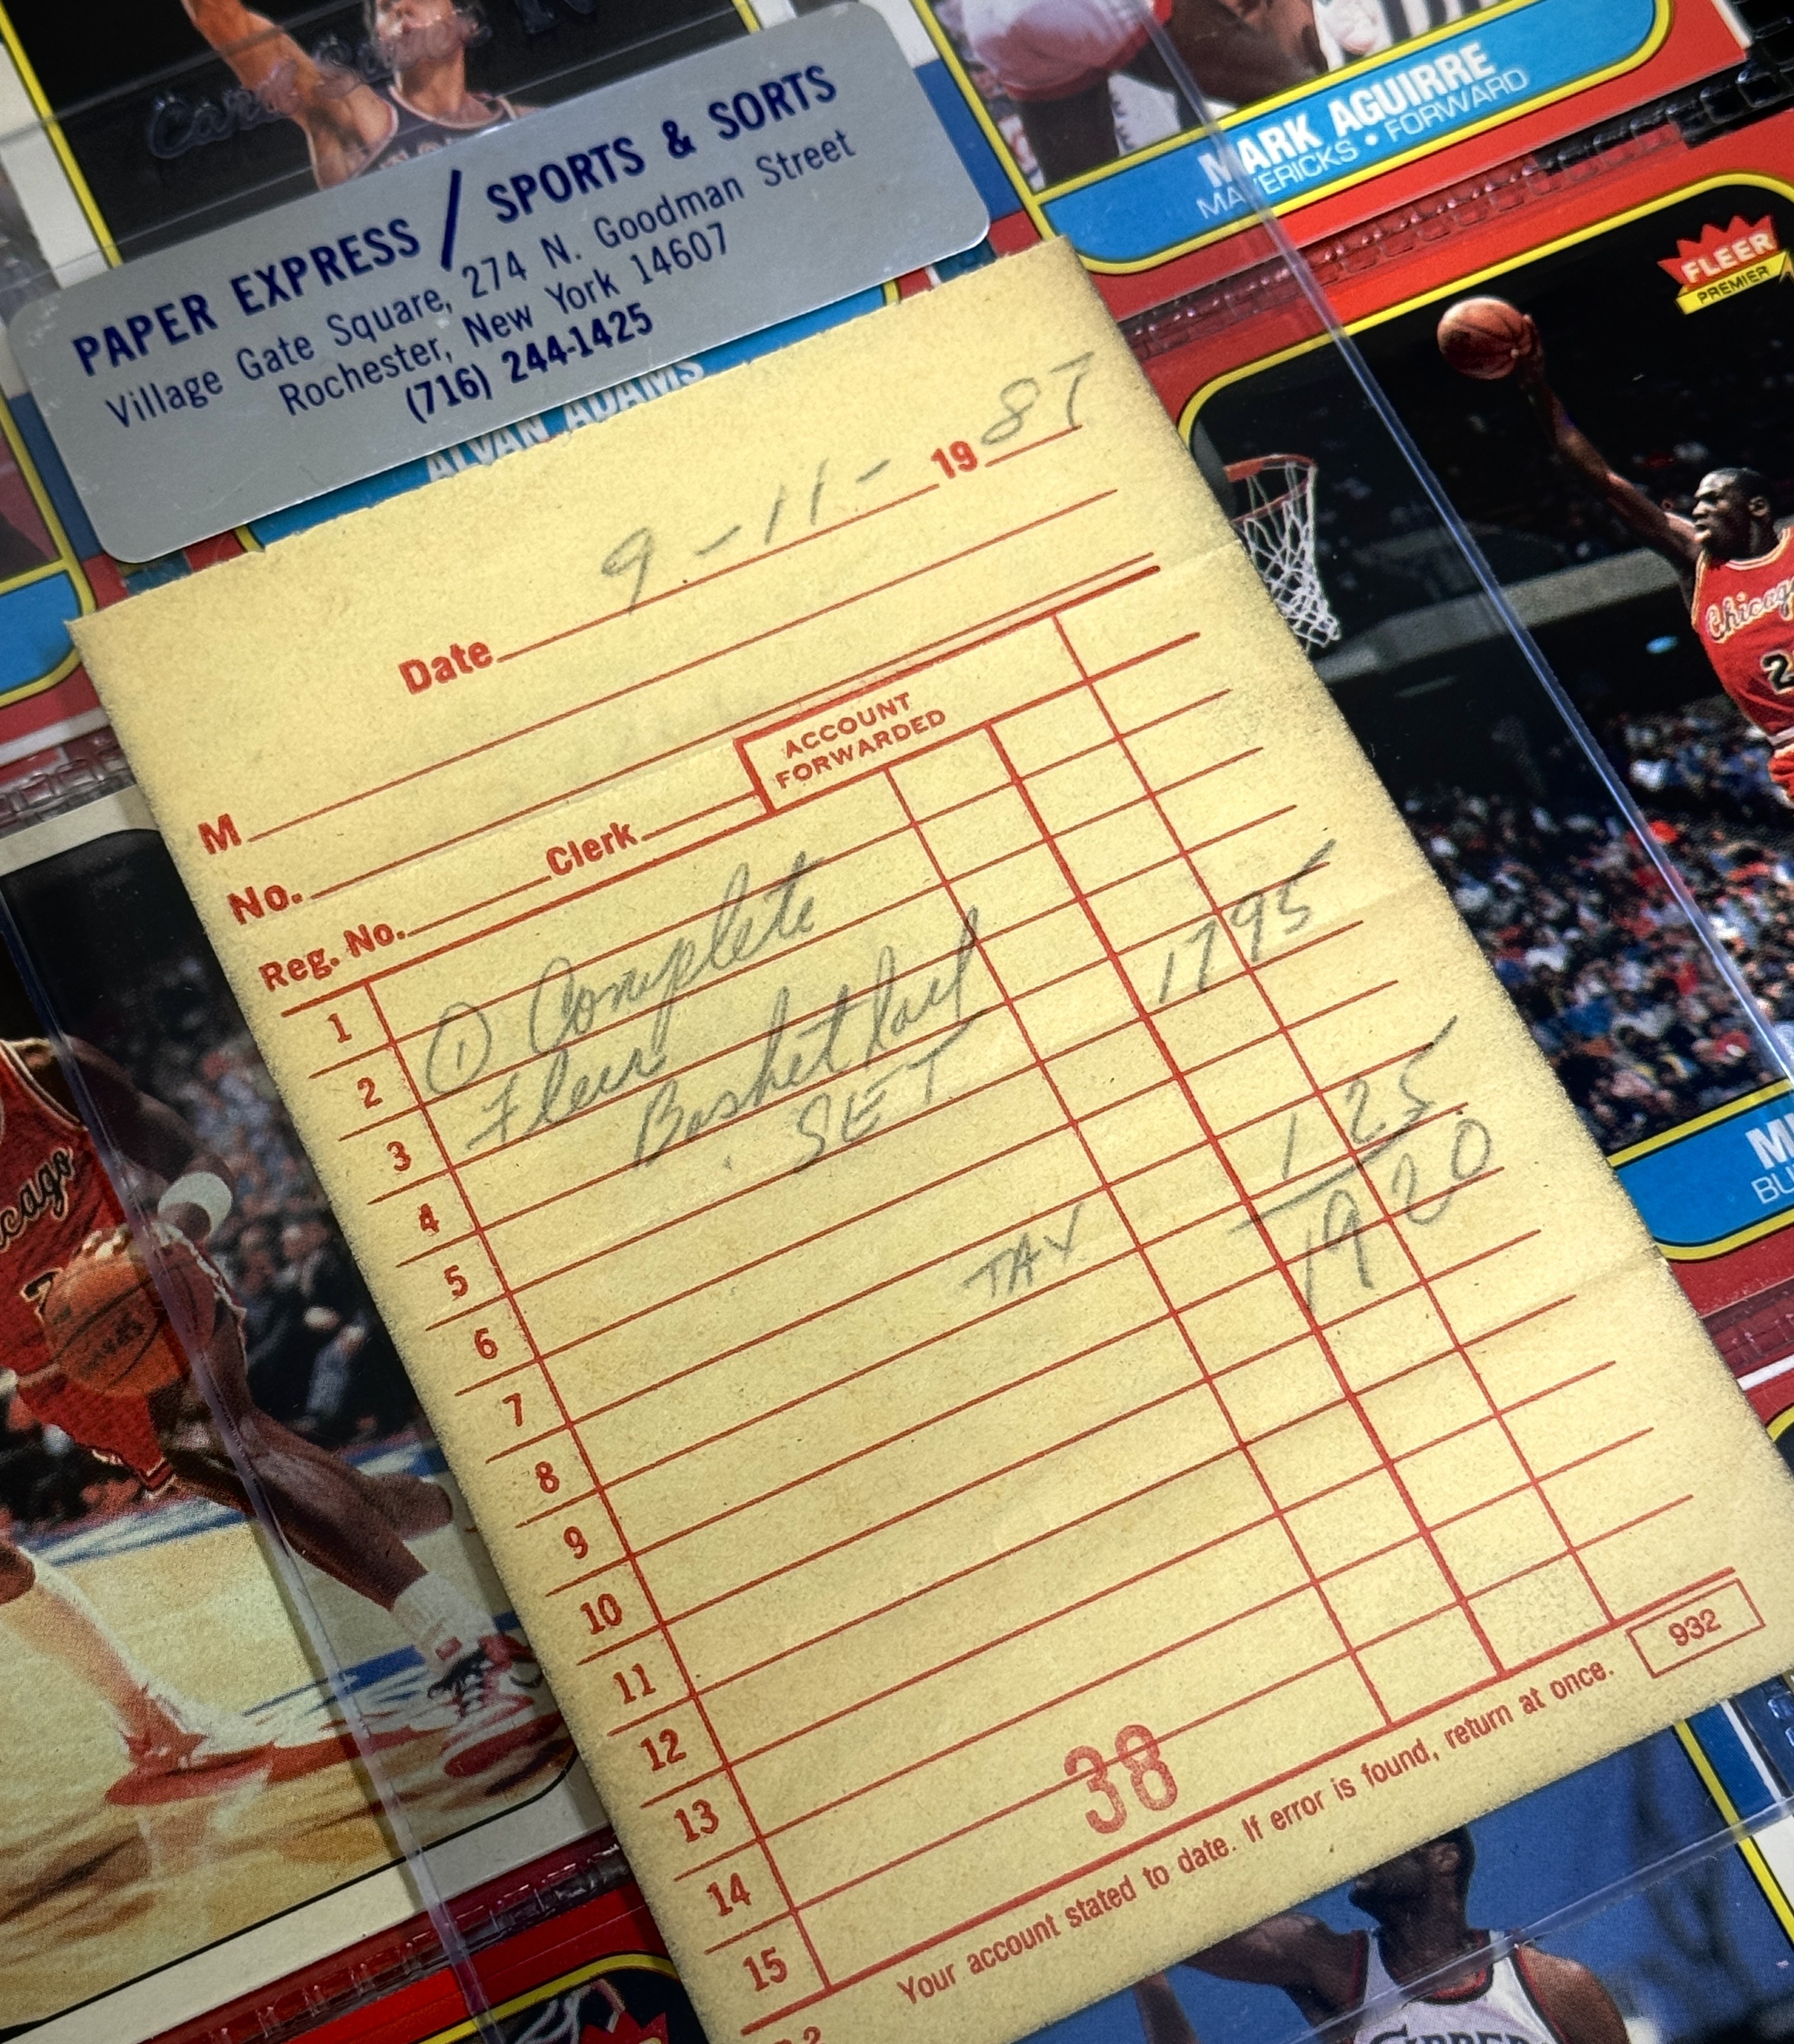 PAPER EXPRESS / SPORTS & SORTS
Village Gate Square, 274 N. Goodman Street
Rochester, New York 14607
(716) 244-1425
MARK AGUIRRE
MAVERICKS • FORWARD
FLEER
PREMIER
ALVAN ADAMS
Chicago
Date 9-11- 19 87
M
No.
Reg. No. Clerk
ACCOUNT
FORWARDED
1
2 ① Complete
3 Fleer
4 Basketball 1795
5 SET
6
7 TAX 1 25
8 19 20
9
10
11
12
13
14
15
38
Your account stated to date. If error is found, return at once.
932